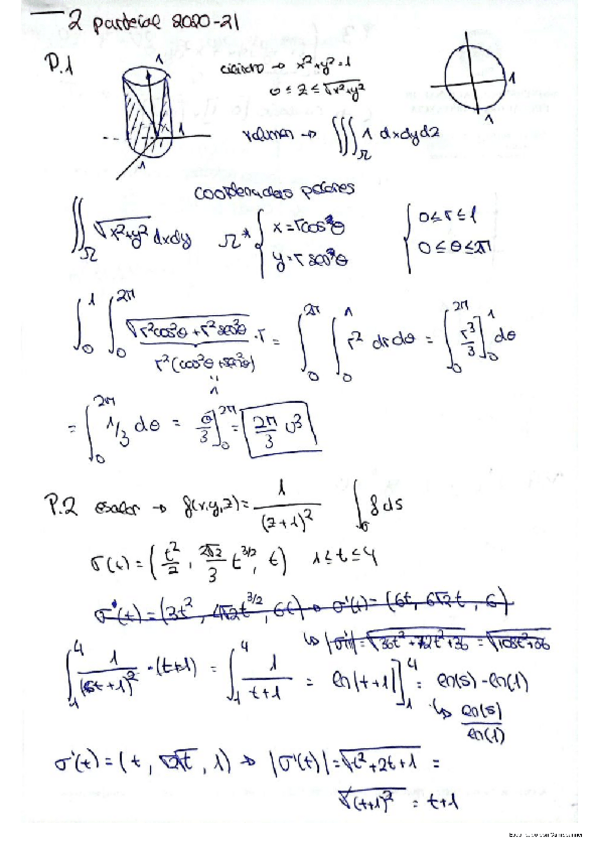 2 parcial 2020-21
P.1 cilindro → x²+y²=1
0 ≤ z ≤ √x²+y²
volumen → ∭_Ω 1 dxdydz
coordenadas polares
∬_Ω √x²+y² dxdy Ω* { x = r cosθ { 0 ≤ r ≤ 1
y = r senθ 0 ≤ θ ≤ 2π
∫₀¹ ∫₀^2π √r²cos²θ + r²sen²θ · r = ∫₀^2π ∫₀¹ r² dr dθ = ∫₀^2π [r³/3]₀¹ dθ
r²(cos²θ + sen²θ)
1
= ∫₀^2π 1/3 dθ = θ/3 ]₀^2π = 2π/3 u³
P.2 escalar → f(x,y,z) = 1/(z+1)² ∫_σ f ds
σ(t) = (t²/2, 2√2/3 t^3/2, t) 1 ≤ t ≤ 4
σ'(t) = (3t², 4√2t^3/2, 6t) → σ'(t) = (6t, 6√2t, 6)
↳ |σ'| = √36t²+72t²+36 = √108t²+36
∫₁⁴ 1/(6t+1)² · (t+1) = ∫₁⁴ 1/t+1 = ln|t+1| ]₁⁴ = ln(5) - ln(1)
↳ ln(5)/ln(1)
σ'(t) = (t, √2t, 1) → |σ'(t)| = √t²+2t+1 =
√(t+1)² = t+1